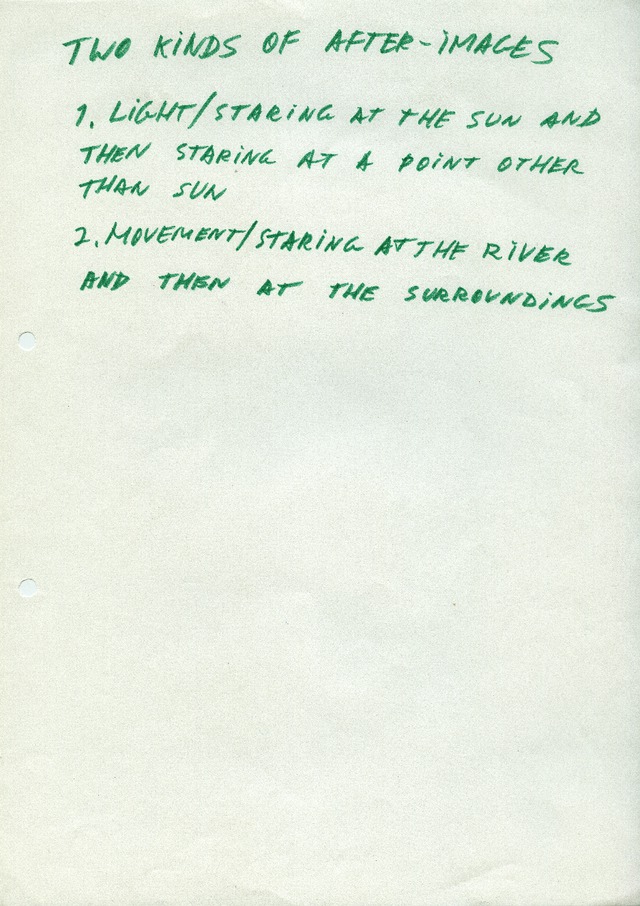 TWO KiNDS OF AFTER-iMAGES
1. LiGHT/STARiNG AT THE SUN AND
THEN STARiNG AT A POiNT OTHER
THAN SUN
2. MOVEMENT/STARiNG AT THE RiVER
AND THEN AT THE SURROUNDiNGS